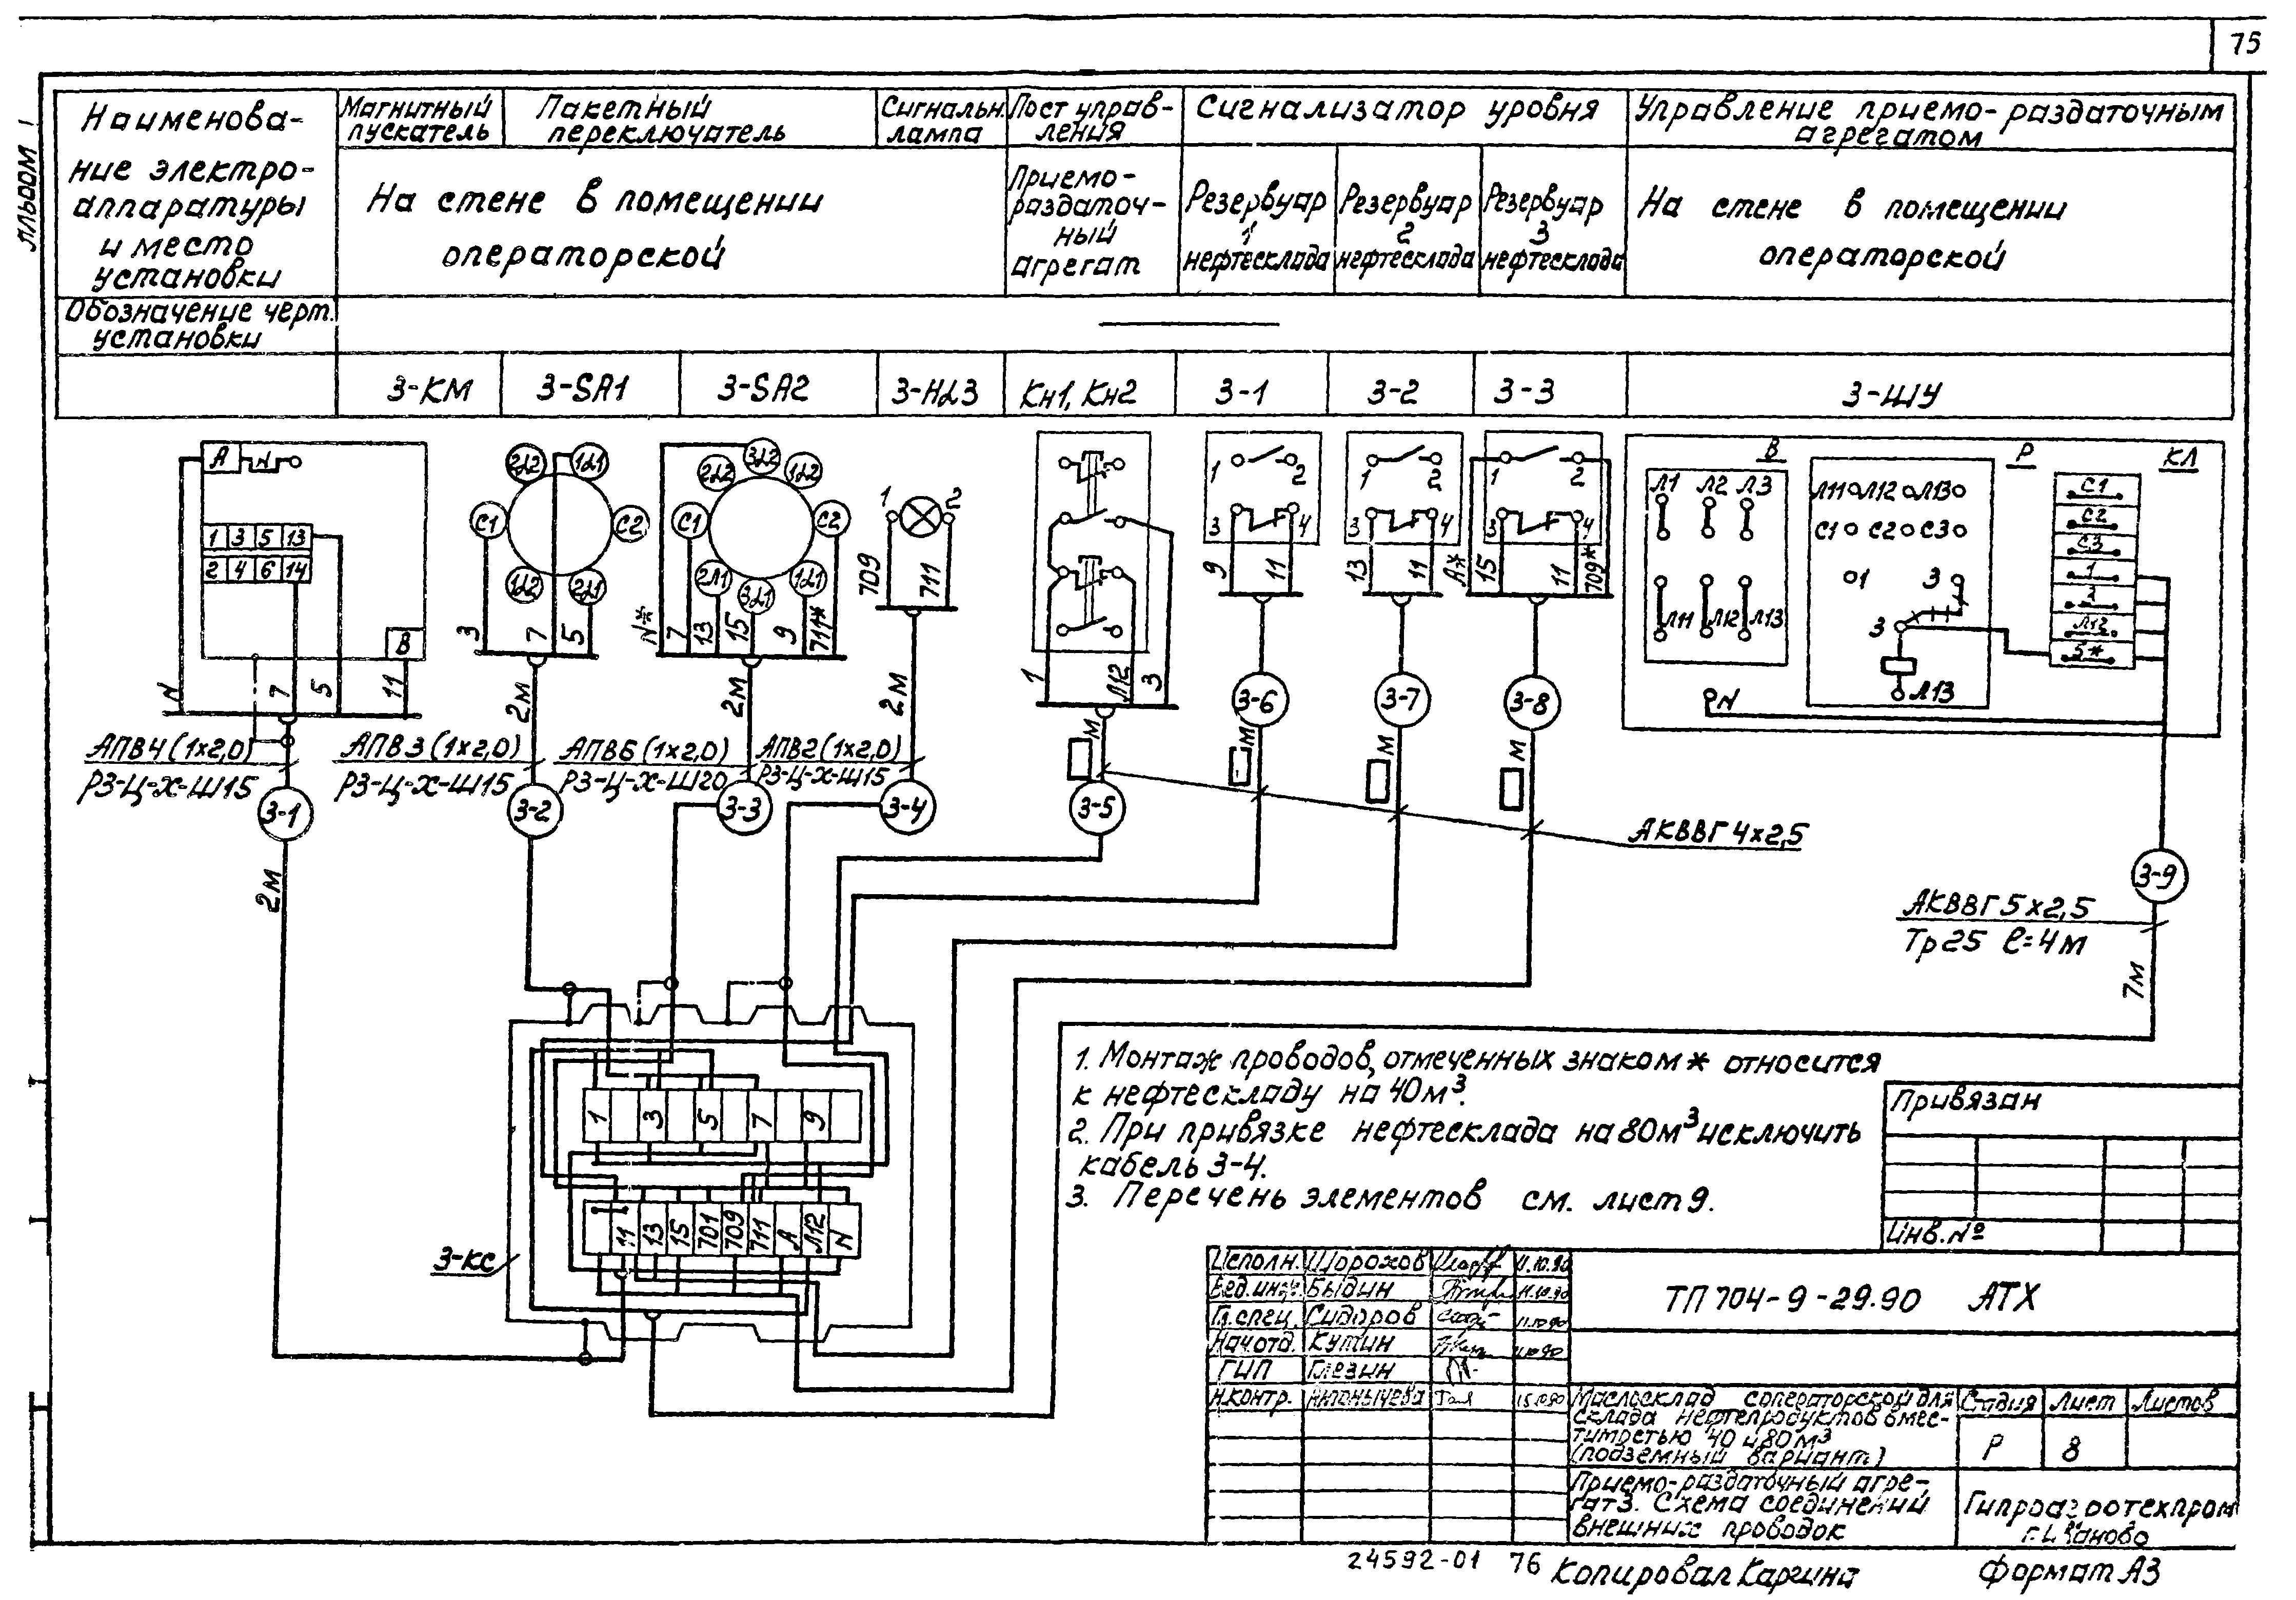 75
Альбом 1
Наименова-
ние электро-
аппаратуры
и место
установки
Магнитный
пускатель
Пакетный
переключатель
Сигнальн.
лампа
Пост управ-
ления
Сигнализатор уровня
Управление приемо-раздаточным
агрегатом
На стене в помещении
операторской
Приемо-
раздаточ-
ный
агрегат
Резервуар
1
нефтесклада
Резервуар
2
нефтесклада
Резервуар
3
нефтесклада
На стене в помещении
операторской
Обозначение черт.
установки
3-КМ
3-SA1
3-SA2
3-HL3
Кн1, Кн2
3-1
3-2
3-3
3-ШУ
А
1 3 5 13
2 4 6 14
В
N 7 5 11
2L2 1L1
С1 С2
1L2 2L1
3 7 5
3L2
2L2 1L2
С1 С2
2Л1 3L1 1L1
N* 7 13 15 9 711*
1 2
709 711
1 Л12 3
1 2
3 4
9 11
1 2
3 4
13 11
А*
1 2
3 4
15 11 709*
В Р КЛ
Л1 Л2 Л3
Л11 Л12 Л13
N
Л11 Л12 Л13
С1 С2 С3
1 3
3
Л13
С1
С2
С3
1
2
Л12
5*
2м 2м 2м
АПВ4(1x2,0)
РЗ-Ц-Х-Ш15
АПВ3(1x2,0)
РЗ-Ц-Х-Ш15
АПВ6(1x2,0)
РЗ-Ц-Х-Ш20
АПВ2(1x2,0)
РЗ-Ц-Х-Ш15
м м м м
3-1
3-2
3-3
3-4
3-5
3-6
3-7
3-8
3-9
АКВВГ 4x2,5
2м
АКВВГ 5x2,5
Тр25 ℓ=4м
7м
1 3 5 7 9
11 13 15 701 709 711 А Л12 N
3-КС
1. Монтаж проводов, отмеченных знаком * относится
к нефтескладу на 40м³.
2. При привязке нефтесклада на 80м³ исключить
кабель 3-4.
3. Перечень элементов см. лист 9.
Привязан
Инв.№
Исполн. Шорохов 11.10.90
Вед.инж. Быдин 11.10.90
Гл.спец. Сидоров 11.10.90
Нач.отд. Кутин 11.10.90
ГИП Глезин
Н.контр. 15.10.90
ТП 704-9-29.90 АТХ
Маслосклад с операторской для
склада нефтепродуктов вмес-
тимостью 40 и 80м³
(подземный вариант)
Стадия Лист Листов
Р 8
Приемо-раздаточный агре-
гат 3. Схема соединений
внешних проводок
Гипроагротехпром
г. Иваново
24592-01 76
Копировал Каргина
Формат А3